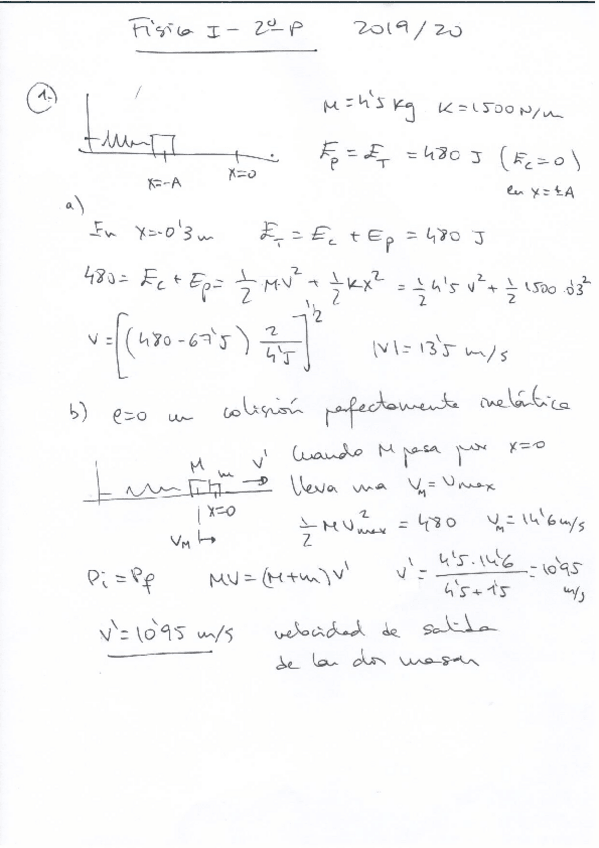 Física I - 2º P 2019/20
1.-
M = 4'5 Kg K = 1500 N/m
E_p = E_T = 480 J (E_c = 0)
en x = ±A
x=-A x=0
a)
En x = -0'3 m E_T = E_c + E_p = 480 J
480 = E_c + E_p = 1/2 M·V² + 1/2 KX² = 1/2 4'5 V² + 1/2 1500·0'3²
V = [(480 - 67'5) 2/4'5]^1/2 |V| = 13'5 m/s
b) e=0 en colisión perfectamente inelástica
M m V' Cuando M pasa por x=0
lleva una V_M = V_max
x=0
V_M
1/2 M V²_max = 480 V_M = 14'6 m/s
P_i = P_f MV = (M+m)V' V' = 4'5·14'6 / 4'5+1'5 = 10'95 m/s
V' = 10'95 m/s velocidad de salida
de las dos masas